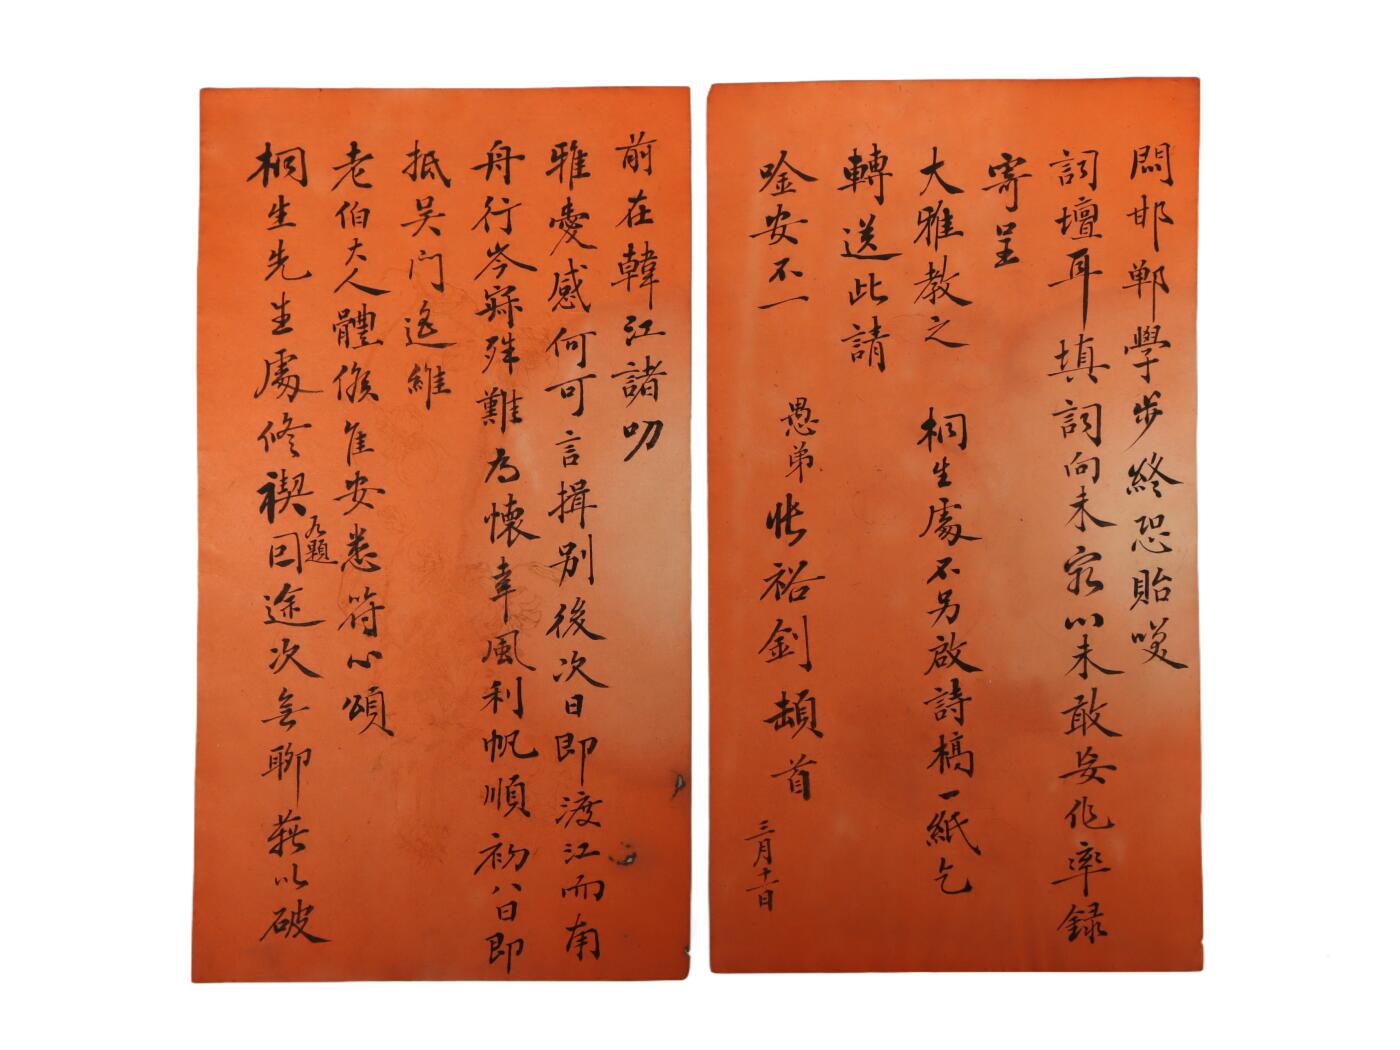 前在韓江諸叨
雅愛感何可言揖別後次日即渡江而南
舟行岑寂殊難為懷幸風利帆順初八日即
抵吴门遥維
老伯大人體候隹安悉符心頌
桐生先生處修禊九題回途次無聊藉以破
悶邯鄲學步終恐貽笑
詞壇耳填詞向未窮心未敢妄作率録
寄呈
大雅教之 桐生處不另啟詩槁一紙乞
轉送此請
唫安不一
愚弟張裕釗頓首
三月十一日